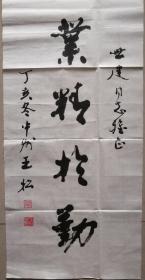 世建同志雅正
業精於勤
丁亥冬中州王松